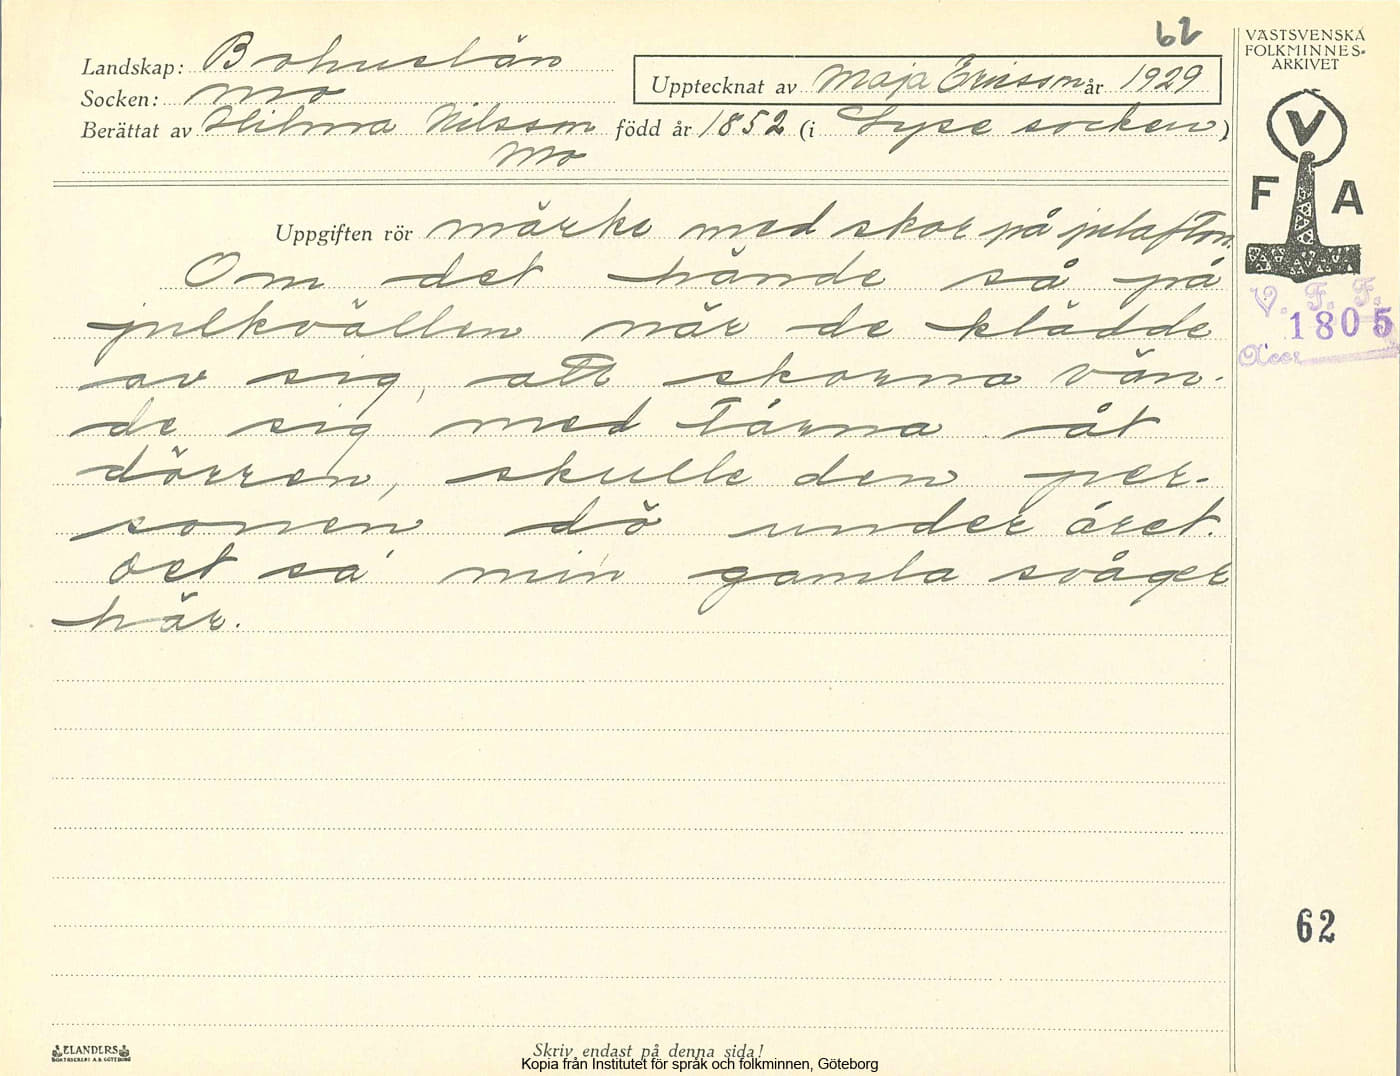 62
VÄSTSVENSKA
FOLKMINNES-
ARKIVET
Landskap: Bohuslän
Upptecknat av Maja Ericsson år 1929
Socken: Mo
Berättat av Hilma Nilsson född år 1852 (i Lyse socken)
Mo
V
F A
Uppgiften rör märke med skor på julafton.
Om det hände så på
julkvällen när de klädde
av sig, att skorna vän-
de sig med tårna åt
dörren, skulle den per-
sonen dö under året.
Det sa' min gamla svåger
här.
V. F. F.
1805
Acc:
62
ELANDERS
BOKTRYCKERI A.B. GÖTEBORG
Skriv endast på denna sida!
Kopia från Institutet för språk och folkminnen, Göteborg